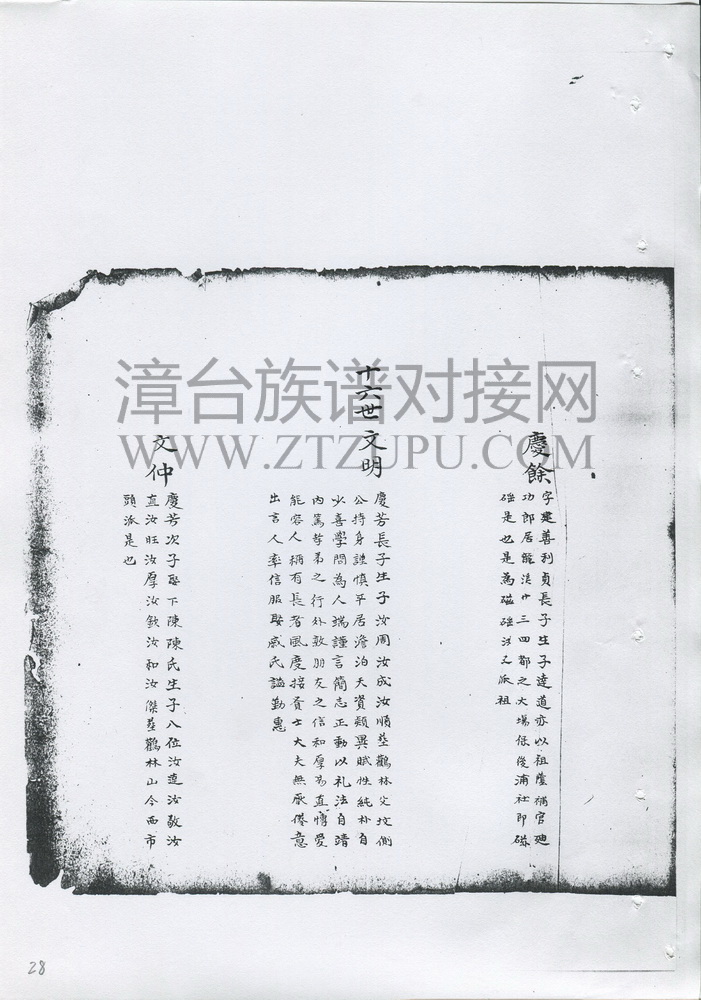 慶餘
字建善利貞長子生子達道亦以祖蔭補官迪
功郎居龍溪廿三四都之大場保後浦社即磁
磘是也是為磁磘沙叉派祖
十六世文明
慶芳長子生子汝周汝成汝順塟鸛林父坟側
公持身謹慎平居澹泊天資頴異賦性純朴自
少喜學問為人端謹言簡志正動以礼法自靖
內篤孝弟之行外敦朋友之信和厚易直博愛
能容人稱有長者風度接賓士大夫無厭倦意
出言人率信服娶戚氏謚勤惠
文仲
慶芳次子娶下陳陳氏生子八位汝造汝敬汝
直汝旺汝厚汝欽汝和汝傑塟鸛林山今西市
頭派是也
漳台族谱对接网
WWW.ZTZUPU.COM
28